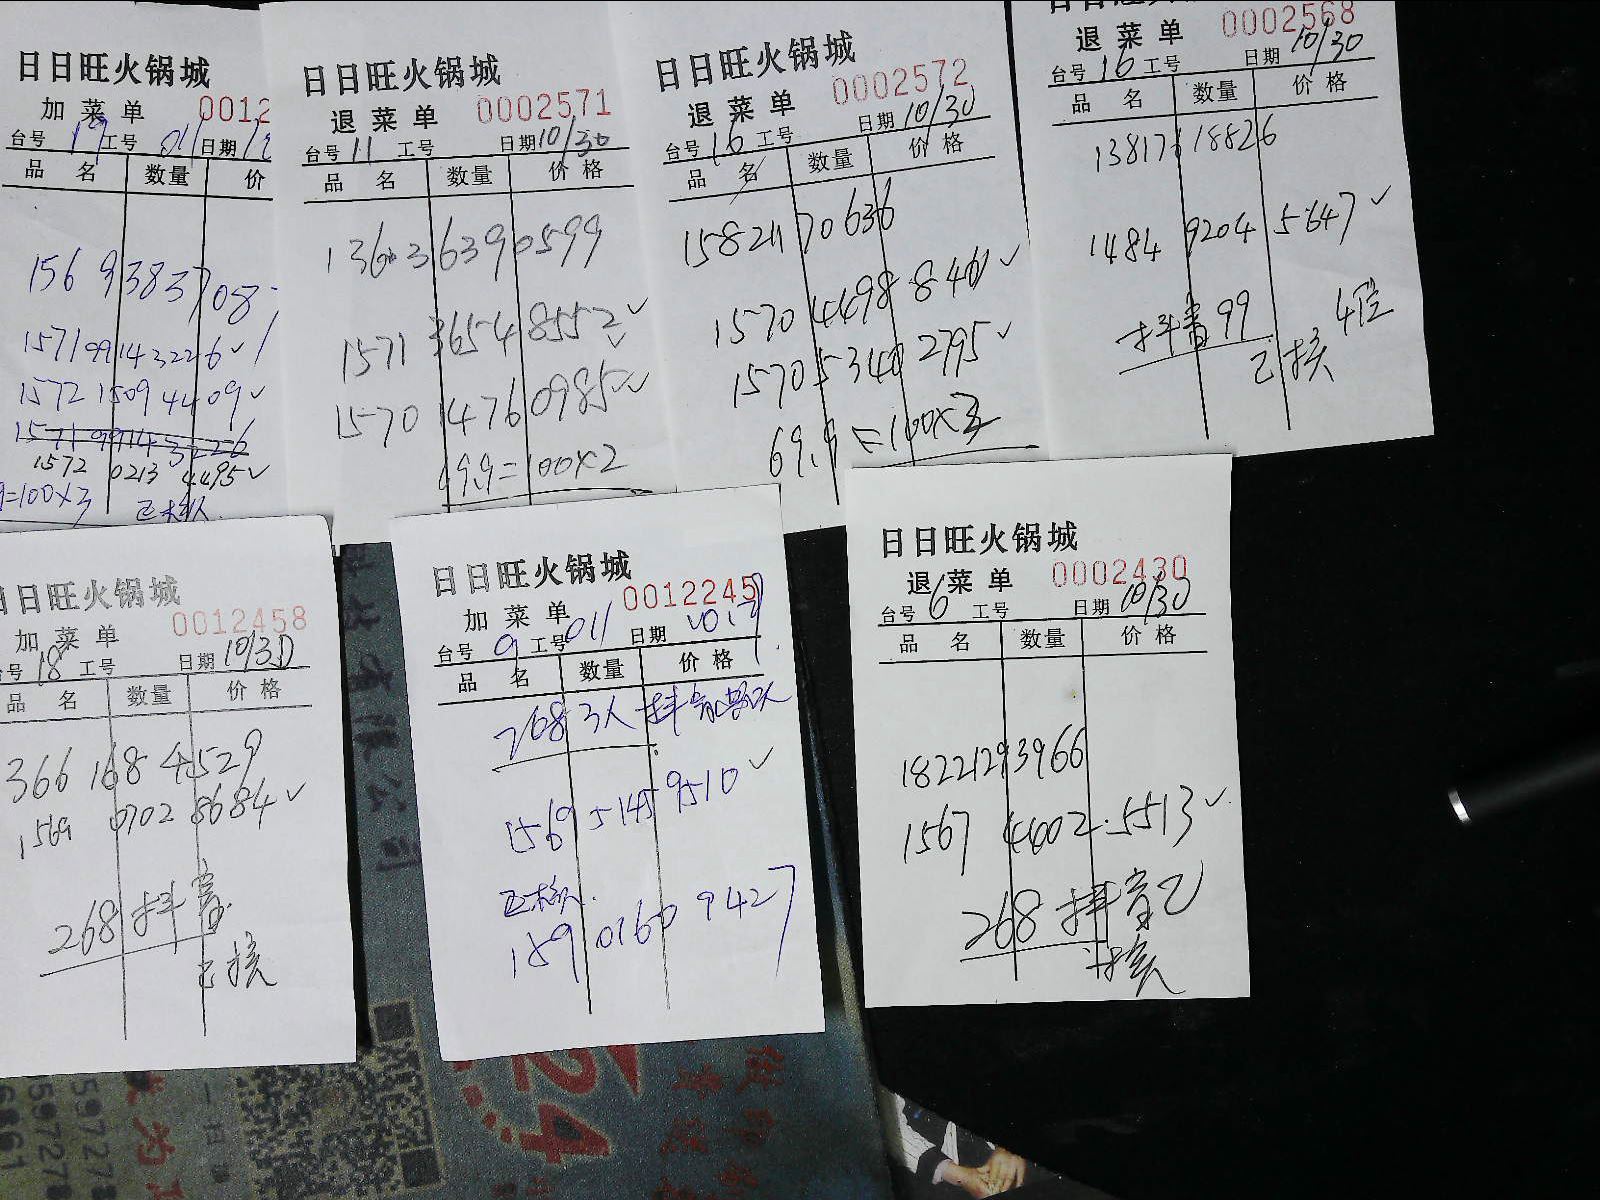 日日旺火锅城
加菜单 0012
台号 19 工号 011 日期
品 名 数量 价
156 93837058
1571 9914 3226 ✓
1572 1509 4409 ✓
1571 9914 3226
1572 0213 4495 ✓
=100×3 已核
日日旺火锅城
退菜单 0002571
台号 11 工号 日期 10/30
品 名 数量 价 格
136 3639 0599
1571 3654 8552 ✓
1570 1476 0985 ✓
69.9=100×2
日日旺火锅城
退菜单 0002572
台号 16 工号 日期 10/30
品 名 数量 价 格
158211 70636
1570 4498 8461 ✓
1570 5340 2795 ✓
69.9=100×3
退菜单 0002568
台号 16 工号 日期 10/30
品 名 数量 价 格
13817618826
1484 9204 5647 ✓
抖音99 4位
已核
日日旺火锅城
加菜单 0012458
台号 18 工号 日期 10/30
品 名 数量 价 格
366 1684529
1569 0702 8684 ✓
268 抖音
已核
日日旺火锅城
加菜单 0012245
台号 9 工号 011 日期
品 名 数量 价 格
268 3人 抖音
1569 5145 9510 ✓
已核
189 0160 9427
日日旺火锅城
退菜单 0002430
台号 6 工号 日期 10/30
品 名 数量 价 格
18221293966
1567 4402 5513 ✓
268 抖音已
核
有限公司
24